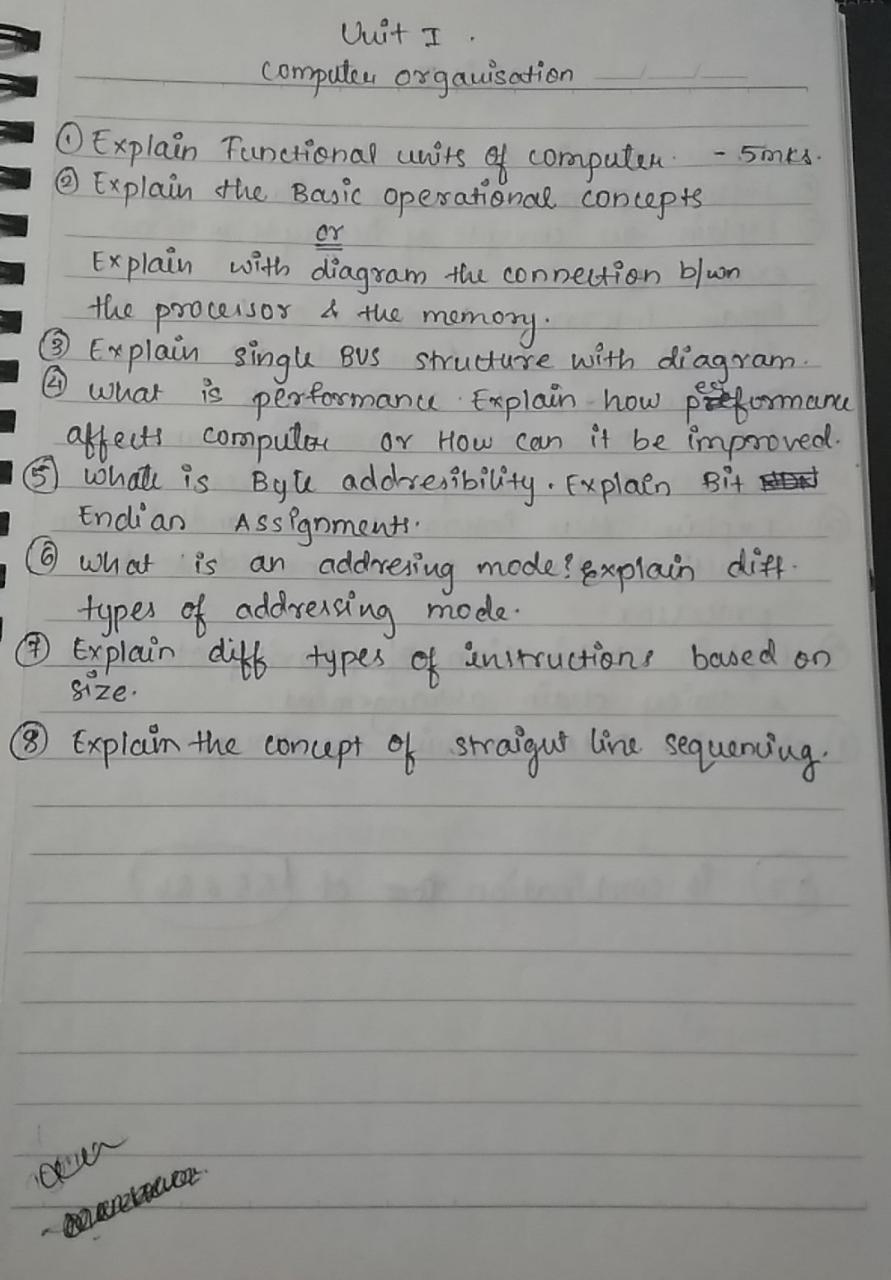 Unit I.
Computer organisation
① Explain Functional units of computer. - 5mks.
② Explain the Basic operational concepts
or
Explain with diagram the connection b/wn
the processor & the memory.
③ Explain single BUS structure with diagram.
④ what is performance. Explain how performance
affects computer or How can it be improved.
⑤ what is Byte addresibility. Explain Bit
Endian Assignments.
⑥ what is an addresing mode? Explain diff.
types of addressing mode.
⑦ Explain diff types of instructions based on
size.
⑧ Explain the concept of straigut line sequencing.